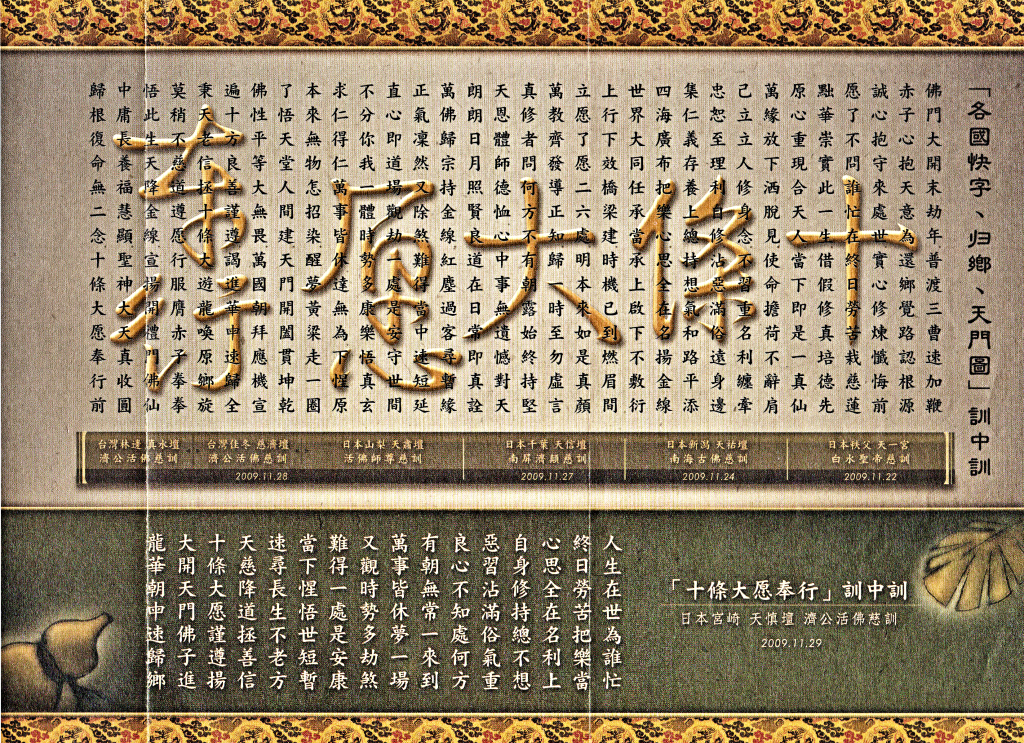 「各國快字、归鄉、天門圖」訓中訓
佛門大開末劫年普渡三曹速加鞭
赤子心抱天意為還鄉覺路認根源
誠心抱守來處世實心修煉懺悔前
愿了不問誰忙在終日勞苦栽慈蓮
點華崇實此一生借假修真培德先
原心重現合天人當下即是一真仙
萬緣放下洒脫見使命擔荷不辭肩
己立立人修身念不習重名利纏牽
忠恕至理利自修沾惡滿俗遠身邊
集仁義存養上總持想氣和路平添
四海廣布把樂心思全在名揚金線
世界大同任承當承上啟下不敷衍
上行下效橋梁建時機已到燃眉間
立愿了愿二六處明本來如是真顏
萬教齊發導正知歸一時至勿虛言
真修者問何方不有朝露始終持堅
天恩體師德恤心中事無遺憾對天
朗朗日月照賢良道在日常即真詮
萬佛歸宗持金線紅塵過客尋暫緣
正氣凜然又除煞難得當中速短延
直心即道場觀劫一處是安守世間
不分你我一體時勢多康樂悟真玄
求仁得仁萬事皆休達無為下惺原
本來無物怎招染醒夢黃粱走一圈
了悟天堂人間建天門開闔貫坤乾
佛性平等大無畏萬國朝拜應機宣
遍十方良善謹遵謁進華申速歸全
秉天老信拯十條大遊龍喚原鄉旋
莫稍不慈道遵愿行服膺赤子奉拳
悟此生天降金線宣揚開禮門佛仙
中庸長養福慧顯聖神大天真收圓
歸根復命無二念十條大愿奉行前
十條大愿奉行
日本秩父 天一宮
白水聖帝慈訓
2009.11.22
日本新潟 天祐壇
南海古佛慈訓
2009.11.24
日本千葉 天信壇
南屏濟顛慈訓
2009.11.27
日本山梨 天壽壇
活佛師尊慈訓
台灣佳冬 慈濟壇
濟公活佛慈訓
2009.11.28
台灣林邊 真水壇
濟公活佛慈訓
「十條大愿奉行」訓中訓
日本宮崎 天慎壇 濟公活佛慈訓
2009.11.29
人生在世為誰忙
終日勞苦把樂當
心思全在名利上
自身修持總不想
惡習沾滿俗氣重
良心不知處何方
有朝無常一來到
萬事皆休夢一場
又觀時勢多劫煞
難得一處是安康
當下惺悟世短暫
速尋長生不老方
天慈降道拯善信
十條大愿謹遵揚
大開天門佛子進
龍華朝中速歸鄉